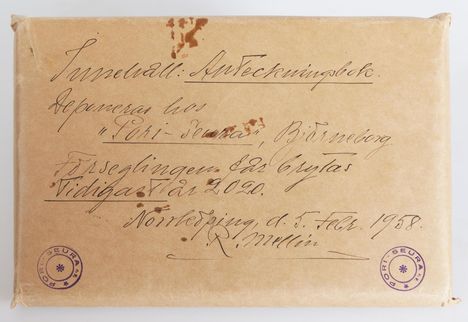 Innehåll: Anteckningsbok.
Deponeras hos
"Pori-Seura", Björneborg
Förseglingen får brytas
tidigast år 2020.
Norrköping d. 5. Febr. 1958.
R. Mellin
PORI-SEURA
PORI-SEURA